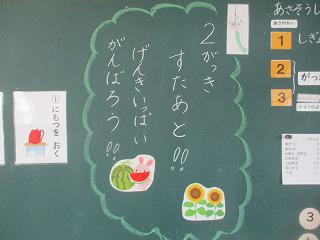 2がっき
すたあと!!
げんきいっぱい
がんばろう!!
①にもつを おく
あさそうし
あさのかい
1
しぎ
2
がっ
3
3